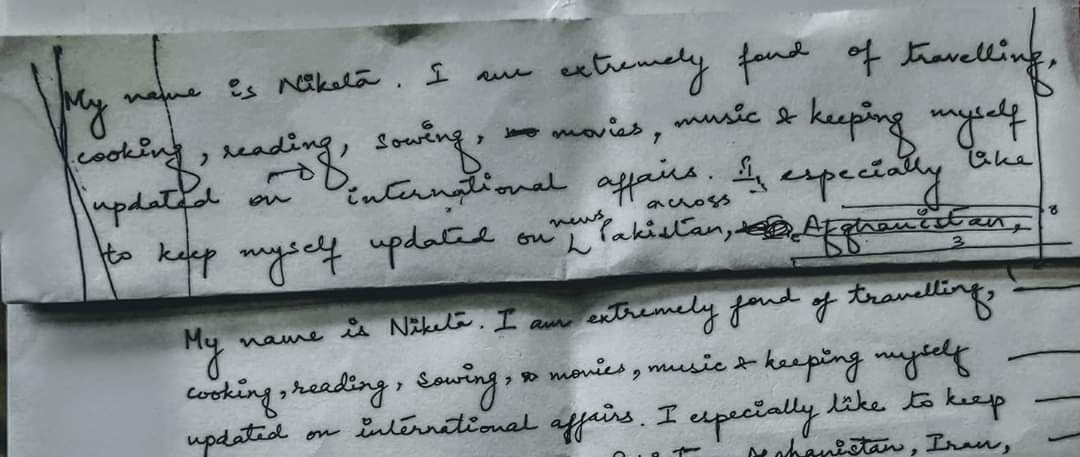 My name is Niketa. I am extremely fond of travelling,
cooking, reading, sowing, movies, music & keeping myself
updated on international affairs. I especially like
to keep myself updated on news across Pakistan, Afghanistan,
8
3
My name is Niketa. I am extremely fond of travelling,
cooking, reading, sowing, movies, music & keeping myself
updated on international affairs. I especially like to keep
Afghanistan, Iran,